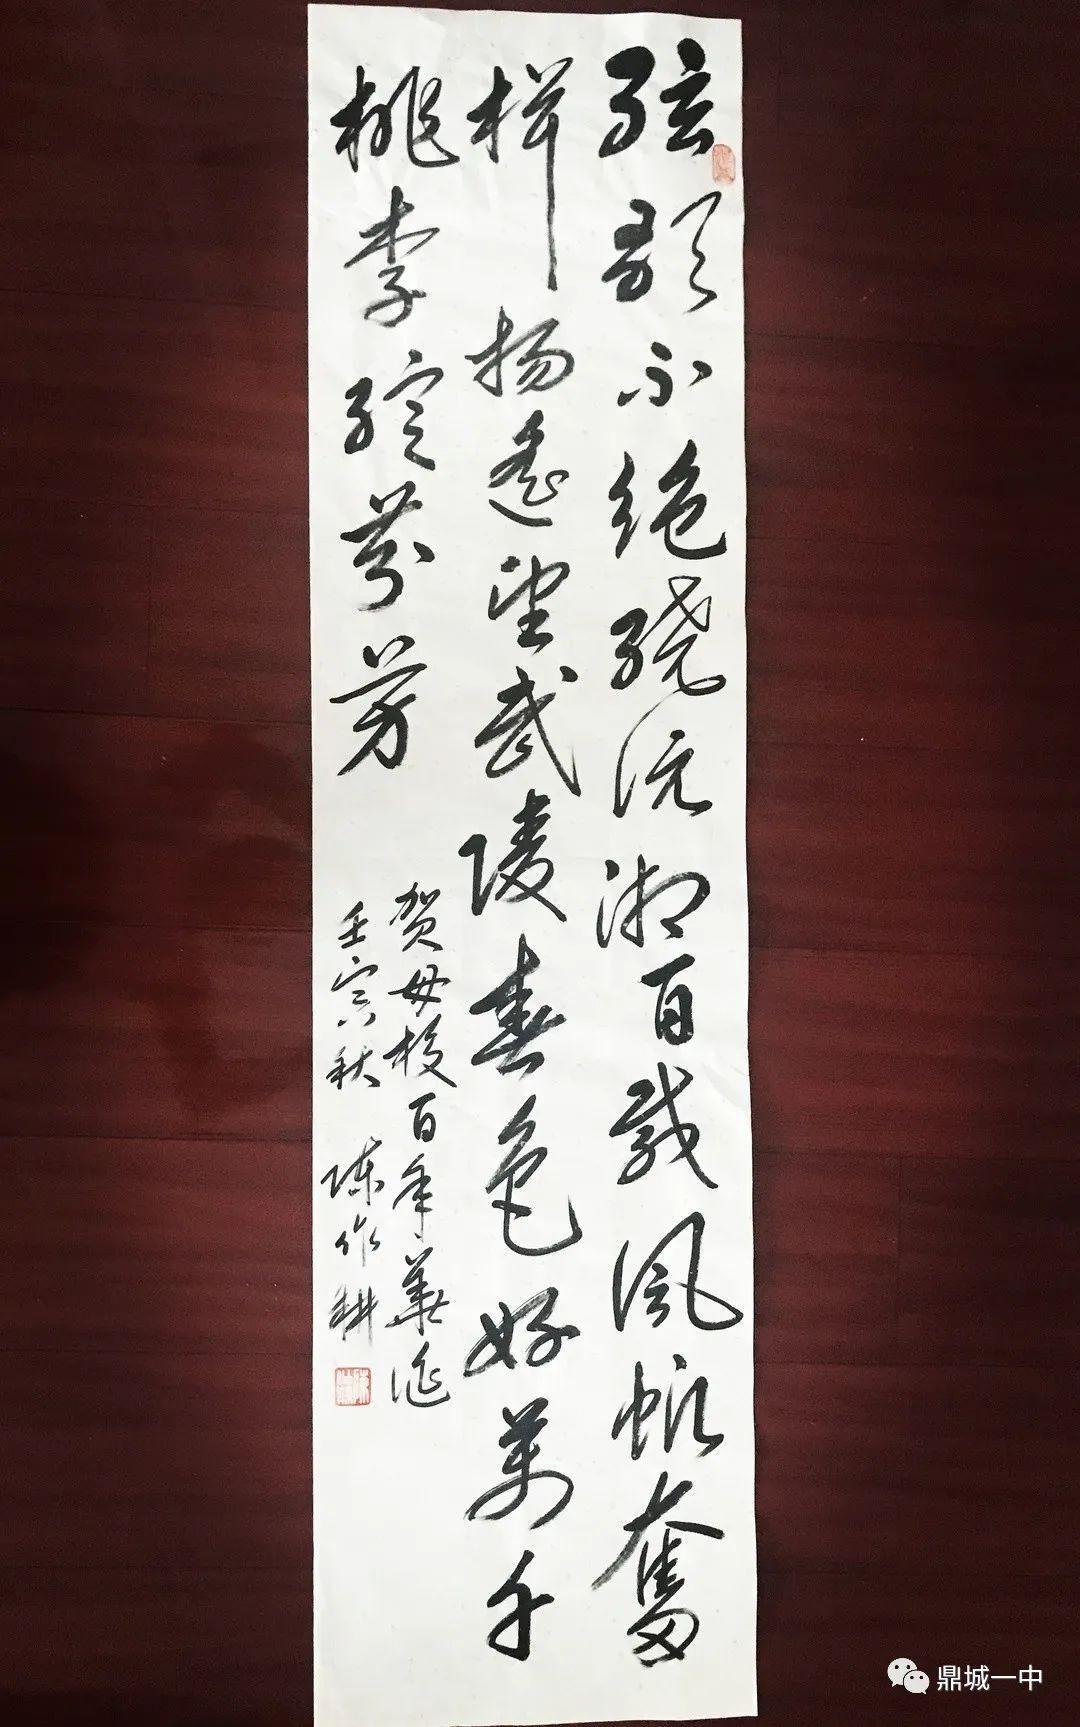 弦歌不绝绕沅湘百载風帆奮
楫扬遥望武陵春色好萬千
桃李绽芬芳
贺母校百年華诞
壬寅秋 陈作耕
鼎城一中